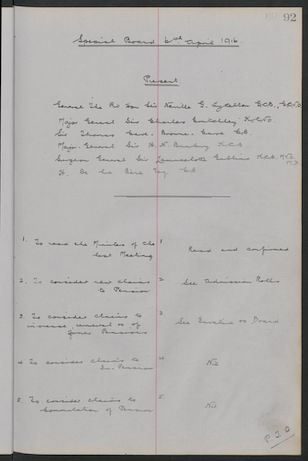 92
Special Board 6th April 1916
Present
General The Rt Hon Sir Neville G. Lyttelton GCB, GCVO
Major General Sir Charles KCVO
Sir Thomas CB
Major General Sir H. N. KCB
Surgeon General Sir Launcelotte Gubbins KCB, MVO
H. De la Bere CB
1. To read the Minutes of the last Meeting
1 Read and confirmed
2. To consider new claims to Pension
2 See Admission Rolls
3. To consider claims to increase, renewal &c of former Pensions
3 See on Board
4. To consider claims to In-Pension
4. Nil
5. To consider claims to Commutation of Pension
5. Nil
P.T.O